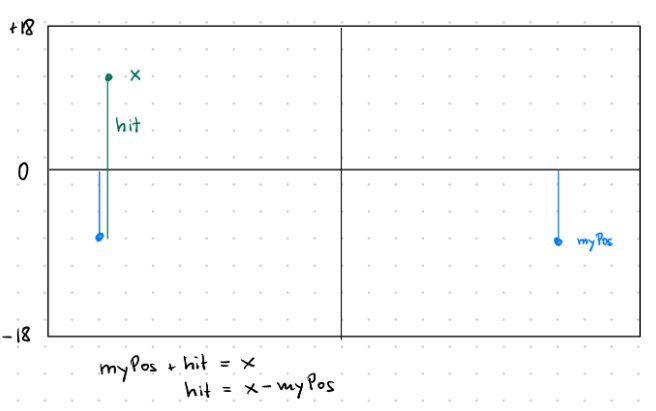 +18
x
hit
0
myPos
-18
myPos + hit = x
hit = x - myPos